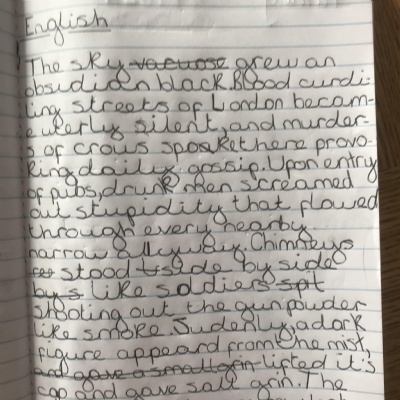 English
The sky varuose grew an
obsidian black. Blood curdi-
ling streets of London becam-
e uterly silent, and murder-
s of crows spoke there provo-
king daily gossip. Upon entry
of pubs, drunk men screamed
out stupidity that flowed
through every hearty
narrow allyway. Chimneys
stood tside by side
by s like soldiers spt
shooting out the gunpowder
like smoke. Sudenly, a dark
figure appeard from the mist,
and gave a small grin lifted it's
cap and gave sall grin. The